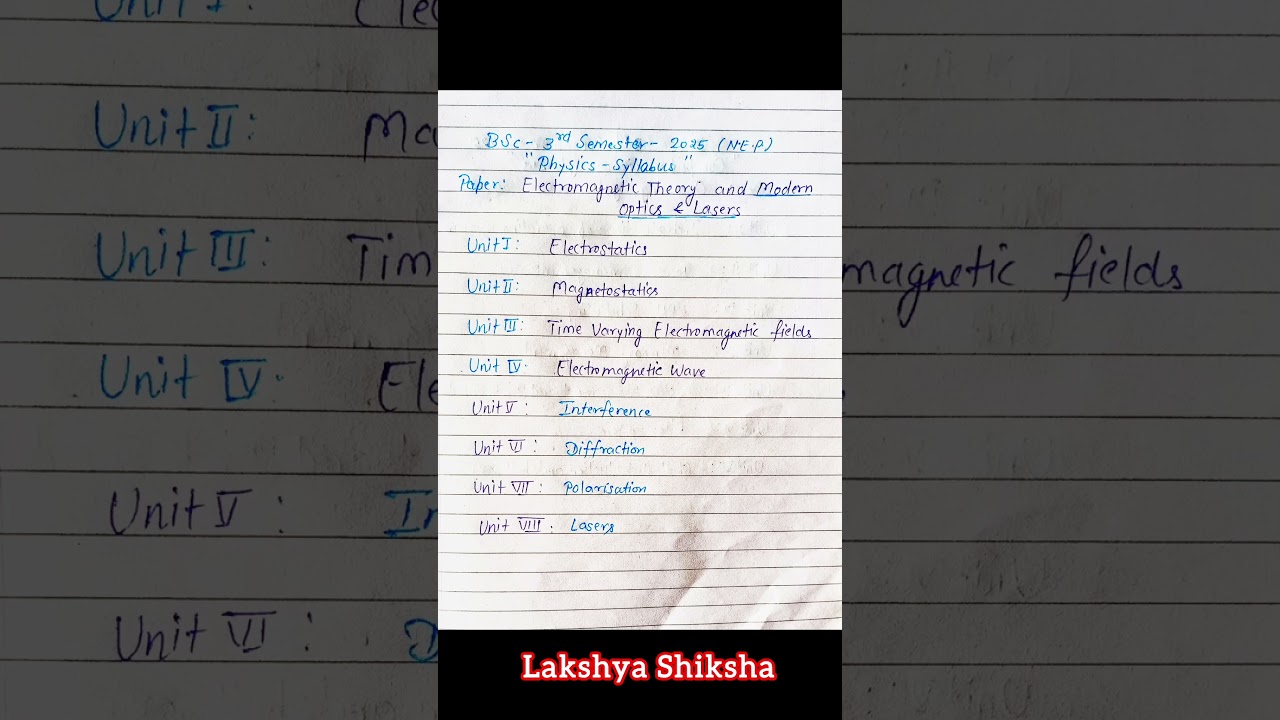 BSc - 3rd Semester - 2025 (N.E.P)
"Physics - Syllabus"
Paper: Electromagnetic Theory and Modern
Optics & Lasers
Unit I: Electrostatics
Unit II: Magnetostatics
Unit III: Time Varying Electromagnetic fields
Unit IV. Electromagnetic Wave
Unit V: Interference
Unit VI: Diffraction
Unit VII: Polarisation
Unit VIII. Lasers
Lakshya Shiksha
Unit II: Ma
Unit III: Tim
magnetic fields
Unit IV. Ele
Unit V: In
Unit VI: D